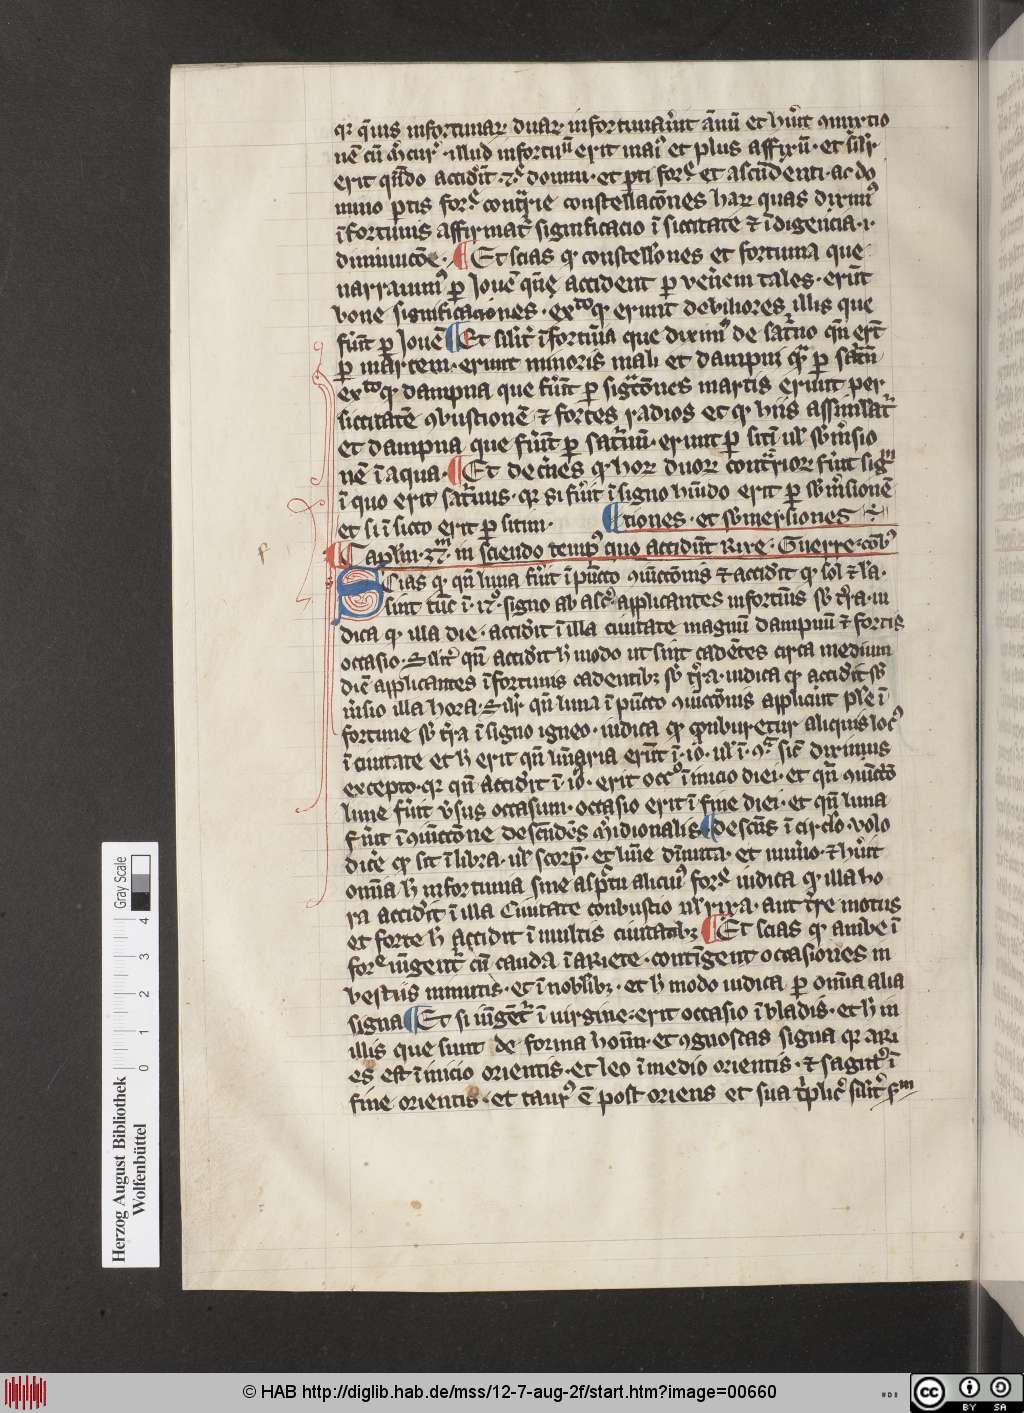 qr quis infortunar duar infortunarūt annū et hūt cōiunctio
nē cū mercur̄ · illud infortuū erit mai⁹ et plus affixū · et silr̄
erit qn̄do accidit · 7 domui · et pti for̄ et ascendenti · ac do
mino ptis for̄ contrarie constellacōnes har quas dixim⁹
ī fortunis affirmat̄ significacio ī siccitate ⁊ īdigēcia · i ·
diminucōe · ¶ Et scias qr constellōnes et fortuna que
narraum⁹ ꝑ Jouē qn̄ accident ꝑ venem tales · erūt
bone significaciones · extoqr erunt debiliores illis que
fūt ꝑ Jouē ¶ Et silit̄ īfortūia que dixim⁹ de sat̄no qn̄ ert̄
ꝑ martem · erunt minoris mali et dampni qͣ ꝑ satn̄
extoqr dampna que fūt ꝑ sigcōnes martis erunt per
siccitatē ꝯbustionē ⁊ fortes radios et qr hiis assimilat̄
et dampna que fūt ꝑ saturnū · erunt ꝑ siti ul sbm̄sio
nē ī aqua · ¶ Et decn̄es qr hor duor contrarior fūt sigm
ī quo erit saturnus · qr si fūit ī signo hūido erit ꝑ sbm̄sionē
et si ī sicco erit ꝑ sitim · ¶ tiones · et sbmersiones
¶ Caplm · 37 · m in sciendo temp⁹ quo accidūt Rixe · Guerre · cōb⁹
Scias qr qn̄ luna fūit ī pūcto ꝯiūctōnis ⁊ accidit qr sol ⁊ lūa ·
sint tūc ī · 12° · signo ab asc̄ · applicantes infortūis sb t̄ra · iu
dica qr illa die · accidit ī illa ciuitate magnū dampnū ⁊ fortis
occasio · Silit̄ qn̄ accidit h modo ut sint cadētes circa medium
diē applicantes īfortunis cadentibz sb t̄ra · iudica qr accidit sb
m̄sio illa hora · Silr̄ qn̄ luna ī pūcto ꝯiūctōnis applicūt pl̄e ī
fortune sb t̄ra ī signo igneo · iudica qr cōburetur aliquis loc⁹
ī ciuitate et h erit qn̄ lūaria erūt ī · 10 · ul ī · 4 · sic dixim̄us
excepto · qr qn̄ accidit ī · 10 · erit occ° ī inicio diei · et qn̄ ꝯiūctō
lune fūit v̄sus occasum · occasio erit ī fine diei · et qn̄ luna
fūit ī ꝯiūctōne descendēs m̄idionalis ¶ descēs ī circlo · volo
dice qr sit ī libra · ul scorp̄ · et lūe dīnuta · et nūo · ⁊ hūt
omīa h infortunia sine aspectu alicui⁹ for̄ iudica qr illa ho
ra accidit ī illa Ciuitate conbustio ul rixa · aut t̄re motus
et forte h accidit ī multis ciuitatibz ¶ Et scias qr ambe ī
for̄ iūgent̄ cū cauda ī ariete · contingent occasiones in
bestiis minutis · et ī nobilibz · et h modo iudica ꝑ omīa alia
signa ¶ Et si iūget̄ ī uirgine · erit occasio ī bladis · et h in
illis que sunt de forma hoīm · et ꝯgnoscas signa qr ari
es est ī inicio orientis · et leo ī medio orientis · ⁊ sagitt⁹ ī
fine orientis · et taur⁹ ē post oriens et sua t̄plic̄ silit̄ sm
Gray Scale
4 3 2 1 0
Herzog August Bibliothek
Wolfenbüttel
© HAB http://diglib.hab.de/mss/12-7-aug-2f/start.htm?image=00660
cc BY SA